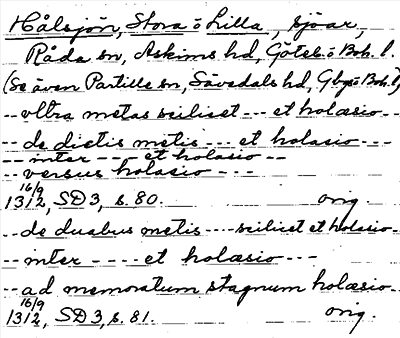 Hålsjön, Stora o Lilla, sjöar,
Råda sn, Askims hd, Göteb. o Boh. l.
(Se även Partille sn, Sävedals hd, Gbg o Boh. l)
-- vltra metas scilicet --- et holæsio --
-- de dictis metis --- et holasio ---
-- inter --- et holasio --
-- versus holasio ---
16/9
1312, SD 3, s. 80. orig.
-- de duabus metis ---- scilicet et holæsio --
-- inter ---- et holæsio ---
-- ad memoratum stagnum holæsio --
16/9
1312, SD 3, s. 81. orig.